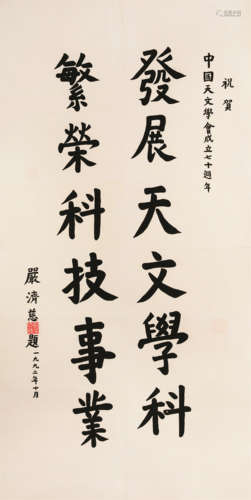 祝賀
中国天文學會成立七十週年
發展天文學科
繁榮科技事業
嚴濟慈題
一九九二年十月